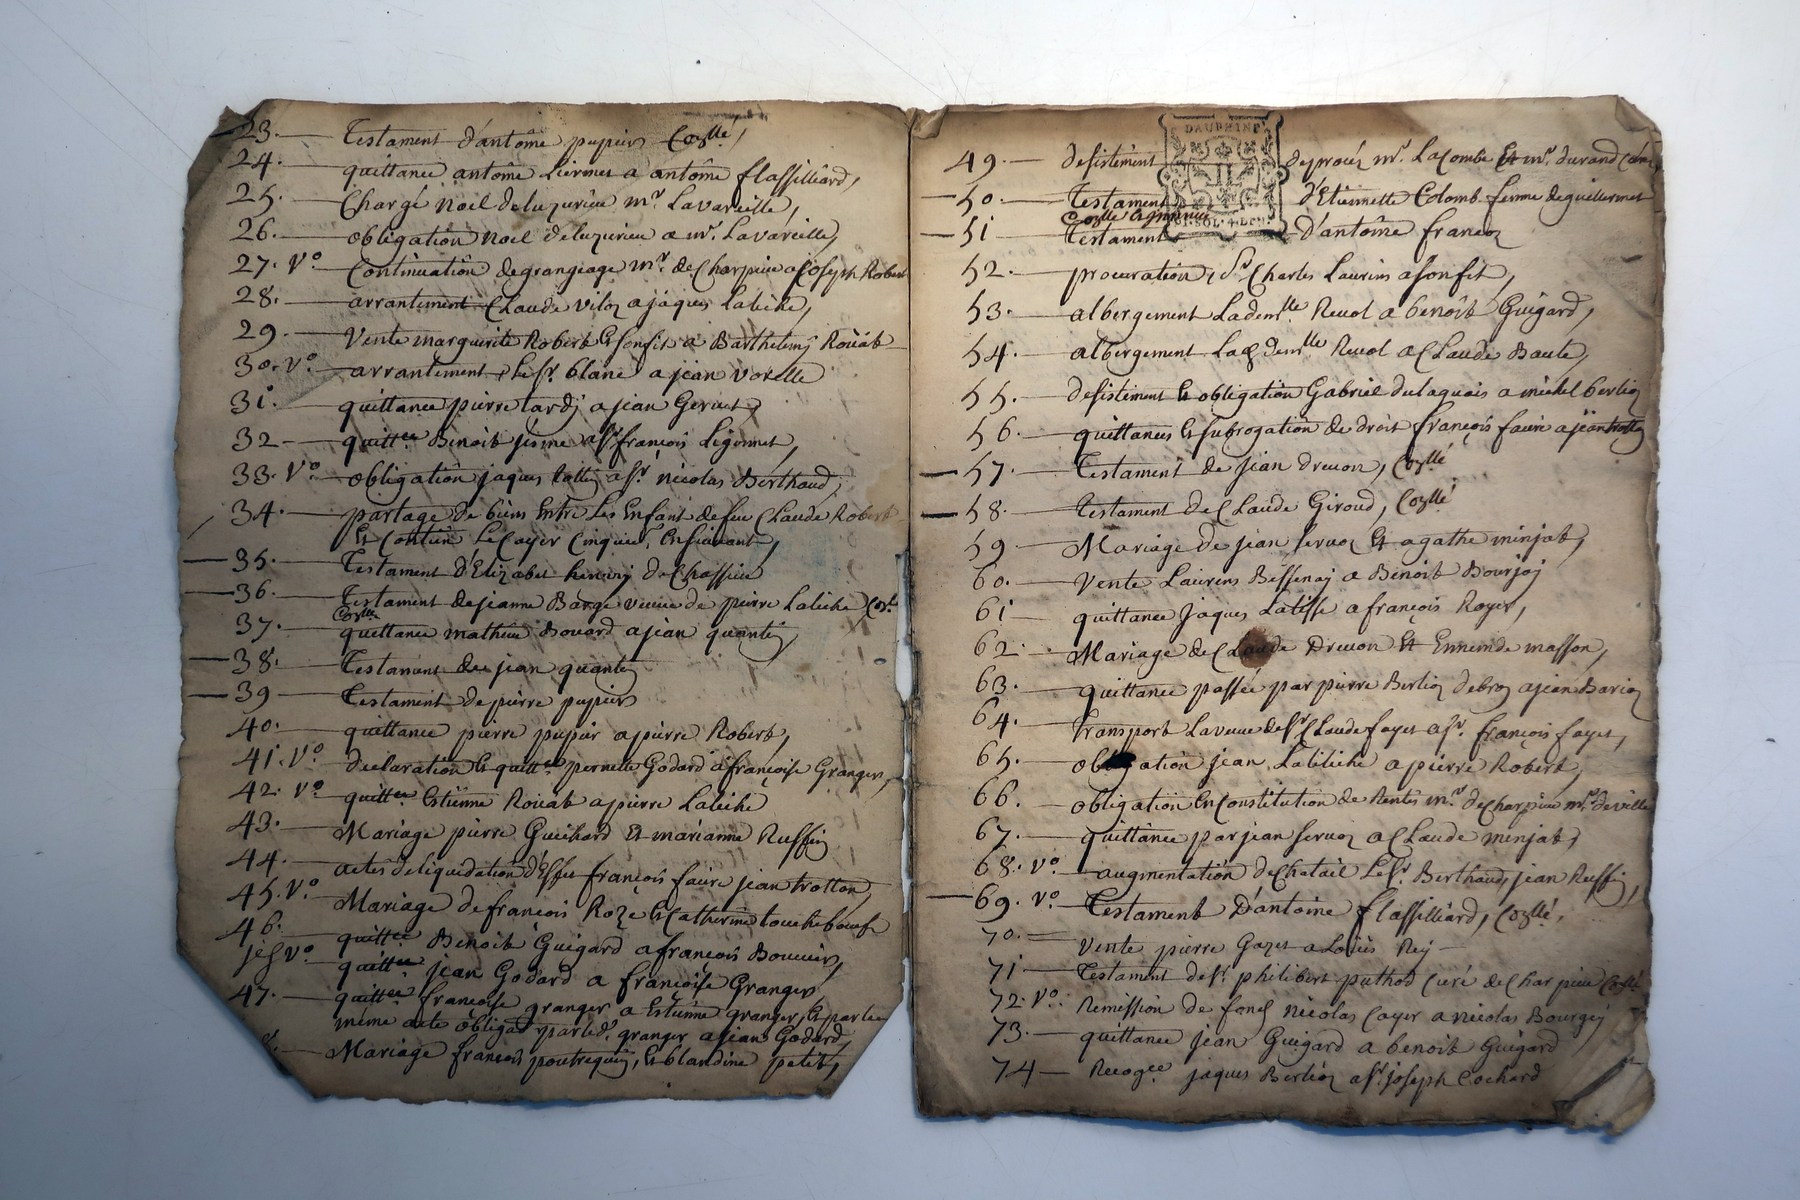 23. Testament d'antoine pupier Collé,
24. quittance antoine a antoine flassilliard,
25. Chargé Noel deluzurieu mr. Lavareille,
26. obligation Noel deluzurieu a mr. Lavareille,
27. Vo. Continuation degrangeage mr. de Charpieu a Joseph Robert
28. arrantement Claude viloz a jaques Latiche,
29. Vente marguerite Robert & son fils a Barthelemy Roüab
30. Vo. arrantement, Le sr. blanc a jean Vorelle
31. quittance pierre tardj a jean
32 quittce Benoit a sr francois Legonnet,
33. Vo. obligation jaques a sr. nicolas Berthaud,
34. partage de biens Entre Les Enfant de feu Claude Robert
& Contien Le Cayer Cinquie. Ensuivant,
35. Testament d'Elizabet de Chassieu
36. Testament de jeanne Barge veuve de pierre Latiche, Collé
Collé
37. quittance mathieu Bouard a jean quantin,
38. Testament de jean quantin
39 Testament de pierre pupier
40. quittance pierre pupier a pierre Robert,
41. Vo. declaration & quittce pernette Godard a françoise Granger,
42. Vo. quittce Estienne Roüab a pierre Latiche
43. Mariage pierre Guichard Et marianne Ruffin
44. actes de liquidation d'Effet françois faure jean trotton,
45. Vo. Mariage de francois Roze & Catherine touchebœuf
46. quittce Benoit Guigard a francois Bouvier,
Vo quittce jean Godard a francoise Granger
47. quittce francoise granger a Estienne granger, & par le
meme acte obligaon par led. granger a jean Godard,
Mariage francois, & blandine petit,
DAUPHINE
49. desistement de procés mr. Lacombe Et mr. durand
50. Testament d'Etiennette Colomb femme de guillermet
Collé la minute
51 Testament d'antoine francoz
52. procuration, sr. Charles Laurens a son fils,
53. albergement Lademlle Revol a benoit Guigard,
54. albergement La demlle Revol a Claude Baute,
55. desistement & obligation Gabriel dulaquais a michel berlioz
56. quittances & subrogation de droit françois faure a jean trotton
57. Testament de jean drevon, Collé
58. Testament de Claude Giroud, Collé
59 Mariage de jean servoz Et agathe minjat,
60. Vente Laurens Bessenaj a Benoit Bourjoj
61 quittance jaques Latisse a françois Royer,
62. Mariage de Claude Drevon Et Ennemde masson,
63. quittance passée par pierre Berlioz debron a jean Barioz
64. transport La veuve de sr Claude fayet a sr. françois fayet,
65. obligation jean Latiliche a pierre Robert,
66. obligation En Constitution de Rentes mr. de Charpieu mr. deville
67. quittance par jean servoz a Claude minjat,
68. Vo. augmentation de Chatail Le sr. Berthaud, jean Ruffin,
69. Vo. Testament D'antoine flassilliard, Collé,
70. Vente pierre Gazet a Loüis Rey
71 Testament de sr. philibert puthod Curé de Charpieu Collé
72. Vo. Remission de fonds nicolas Cayer a nicolas Bourgey
73. quittance jean Guigard a benoit Guigard
74 Recogce jaques Berlioz a sr. joseph Cochard